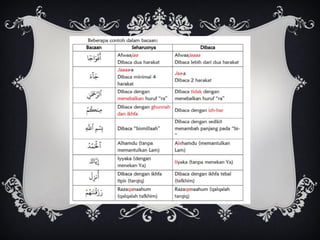 Beberapa contoh dalam bacaan:
Bacaan Seharusnya Dibaca
أَفْوَاجًا Afwaajaa Afwaajaaaa
Dibaca dua harakat Dibaca lebih dari dua harakat
جَآءَ Jaaaa-a Jaa-a
Dibaca minimal 4 harakat Dibaca 2 harakat
الرَّحْمٰنِ Dibaca dengan menebalkan huruf "ra" Dibaca tidak dengan menebalkan huruf "ra"
مِنْكُمْ Dibaca dengan ghunnah dan ikhfa Dibaca dengan izh-har
بِسْمِ اللَّهِ Dibaca "bismillaah" Dibaca dengan sedikit menambah panjang pada "bi-"
اَلْحَمْدُ Alhamdu (tanpa memantulkan Lam) Alnhamdu (memantulkan Lam)
إِيَّاكَ Iyyaka (dengan menekan Ya) Iiyaka (tanpa menekan Ya)
أَنْزَلَ Dibaca dengan ikhfa tipis (tarqiq) Dibaca dengan ikhfa tebal (tafkhim)
وَرَزَقْنَاهُمْ Razaqnaahum (qalqalah tafkhim) Razaqnaahum (qalqalah tarqiq)